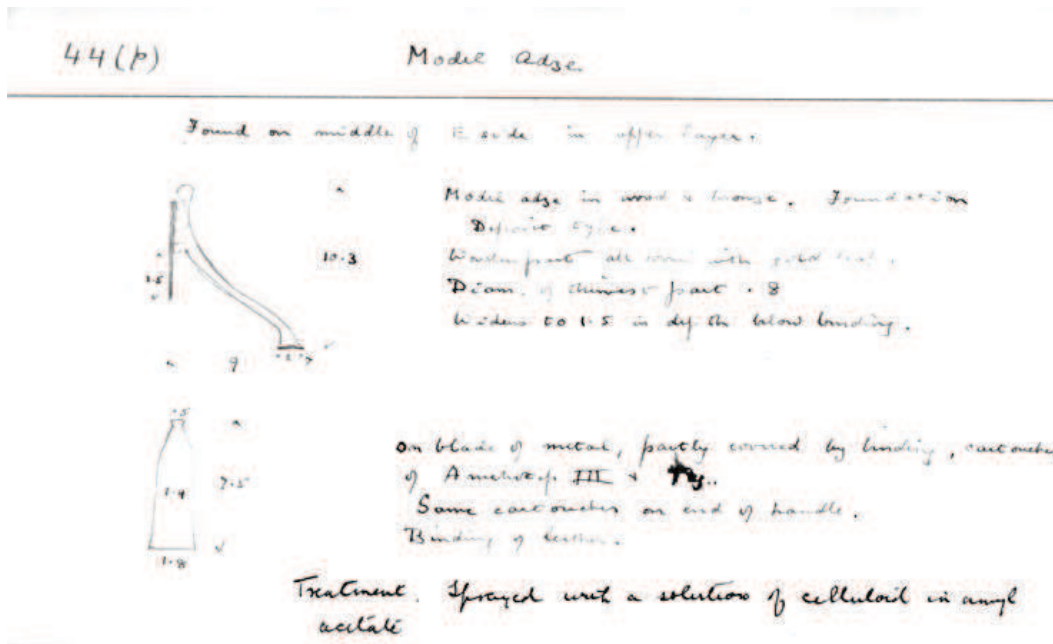 44(p) Model adze
Found on middle of E side in upper layer.
Model adze in wood & bronze. Foundation
10.3
Deposit type.
Wooden part all over with gold leaf.
Diam. of thinnest part .8
1.5
Widens to 1.5 in depth below binding.
9
.5
On blade of metal, partly covered by binding, cartouches
of Amenhotep III &
1.4 7.5
Same cartouches on end of handle.
Binding of leather.
1.8
Treatment. Sprayed with a solution of celluloid in amyl
acetate